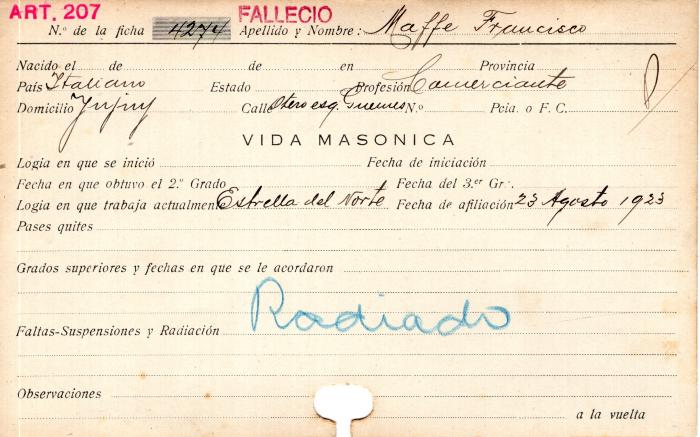 ART. 207 FALLECIO
N.º de la ficha 4274 Apellido y Nombre: Maffe Francisco
Nacido el de de en Provincia
País Italiano Estado Profesión Comerciante
Domicilio Jujuy Calle Otero esq. Guemes N.º Pcia. o F. C.
VIDA MASONICA
Logia en que se inició Fecha de iniciación
Fecha en que obtuvo el 2.º Grado Fecha del 3.er Gr∴
Logia en que trabaja actualmente Estrella del Norte Fecha de afiliación 23 Agosto 1923
Pases quites
Grados superiores y fechas en que se le acordaron
Radiado
Faltas-Suspensiones y Radiación
Observaciones
a la vuelta